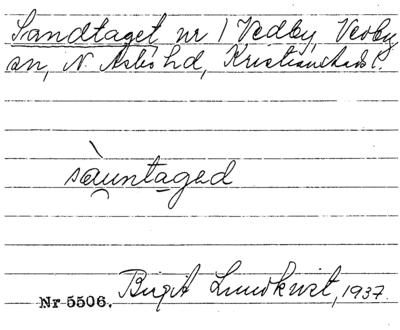 Sandtaget nr 1 Vedby, Vedby
sn, N. Åsbo hd, Kristianstads l.
sàuntaged
Nr 5506. Birgit Lundkvist, 1937.